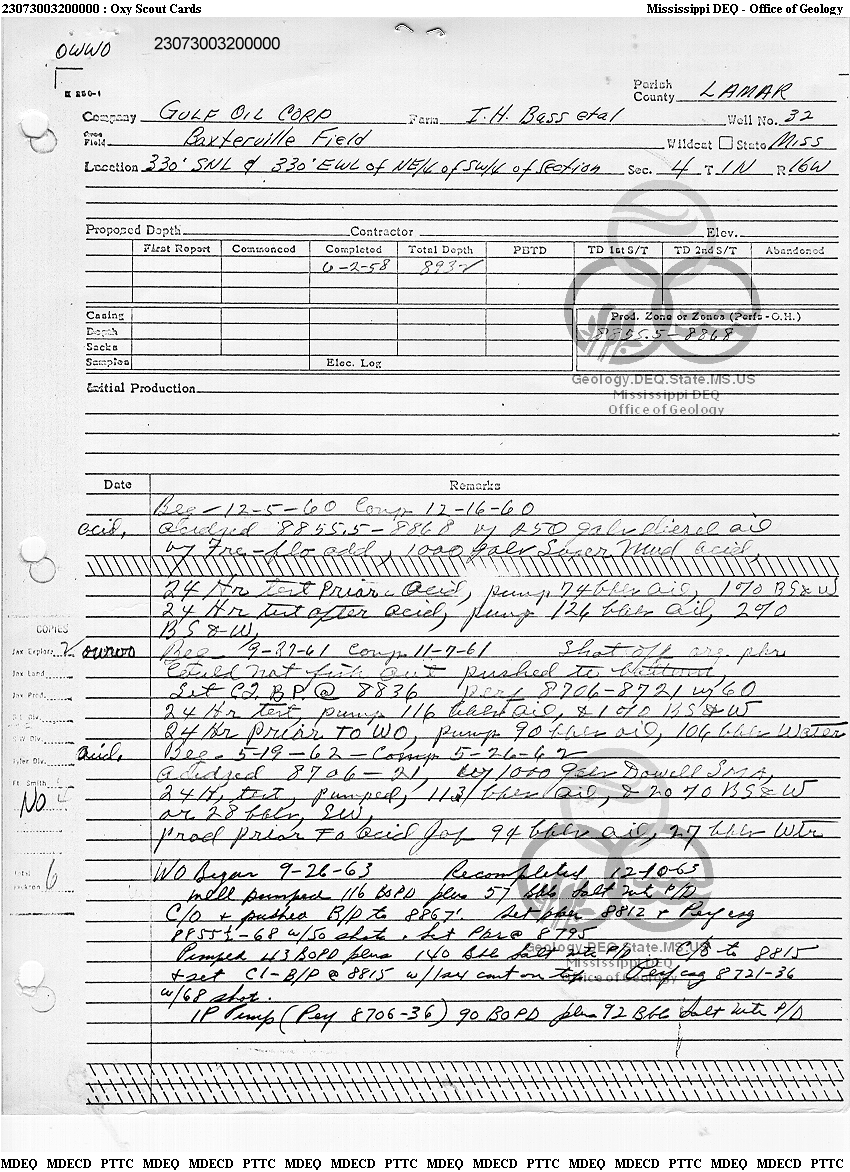 23073003200000 : Oxy Scout Cards Mississippi DEQ - Office of Geology
OWWO 23073003200000
II 250-1
Parish
County LAMAR
Company GULF OIL CORP Farm I.H. Bass etal Well No. 32
Area
Field Baxterville Field Wildcat State Miss
Location 330' SNL & 330' EWL of NE/4 of SW/4 of Section Sec. 4 T 1N R 16W
Proposed Depth Contractor Elev.
First Report Commenced Completed Total Depth PBTD TD 1st S/T TD 2nd S/T Abandoned
6-2-58 8932
Casing Prod. Zone or Zones (Perfs - O.H.)
Depth 8855.5-8868
Sacks
Samples Elec. Log
Geology.DEQ.State.MS.US
Initial Production
Mississippi DEQ
Office of Geology
Date Remarks
Beg - 12-5-60 Comp 12-16-60
acid, acidized 8855.5-8868 w/ 250 gals diesel oil
w/ Fre-flo add, 1000 gals Super Mud acid,
24 Hr test Prior - acid, pump 74 bbls oil, 1% BS&W
24 Hr test after acid, pump 126 bbls oil, 2%
BS&W,
COPIES
Jax Explor. 2 owwo Beg - 9-27-61 Comp 11-7-61 Shot off
Jax Land Could not fish out pushed to bottom,
Jax Prod. Set CI BP. @ 8836 perf 8706-8721 w/60
24 Hr test pump 116 bbls oil, & 1% BS&W
S.W Div. 24 Hr Prior To WO, pump 90 bbls oil, 106 bbls Water
Tyler Div. acid. Beg - 5-19-62 - Comp 5-26-62
Ft. Smith acidized 8706-21, w/1000 gals Dowell
No 24 Hr test, pumped, 113 bbls oil, & 20% BS&W
or 28 bbls, SW,
prod prior To acid Job 94 bbls oil, 27 bbls Wtr
Total 6
Jackson
WO Began 9-26-63 Recompleted 12-10-63
well pumped 116 BOPD plus 57 bbls Salt wtr P/D
C/O & pushed B/P to 8867'. Set pkr 8812 & Perf csg
8855½-68 w/50 shots. Set Pkr @ 8795
Pumped 43 BOPD plus 140 Bbl Salt wtr P/D. C/O to 8815
Geology.DEQ.State.MS.US
Mississippi DEQ
& set CI-B/P @ 8815 w/1sx cmt on top. Perf csg 8721-36
Office of Geology
w/68 shot.
IP Pump (Perf 8706-36) 90 BOPD plus 92 Bbl Salt wtr P/D
MDEQ MDECD PTTC MDEQ MDECD PTTC MDEQ MDECD PTTC MDEQ MDECD PTTC MDEQ MDECD PTTC MDEQ MDECD PTTC MDEQ